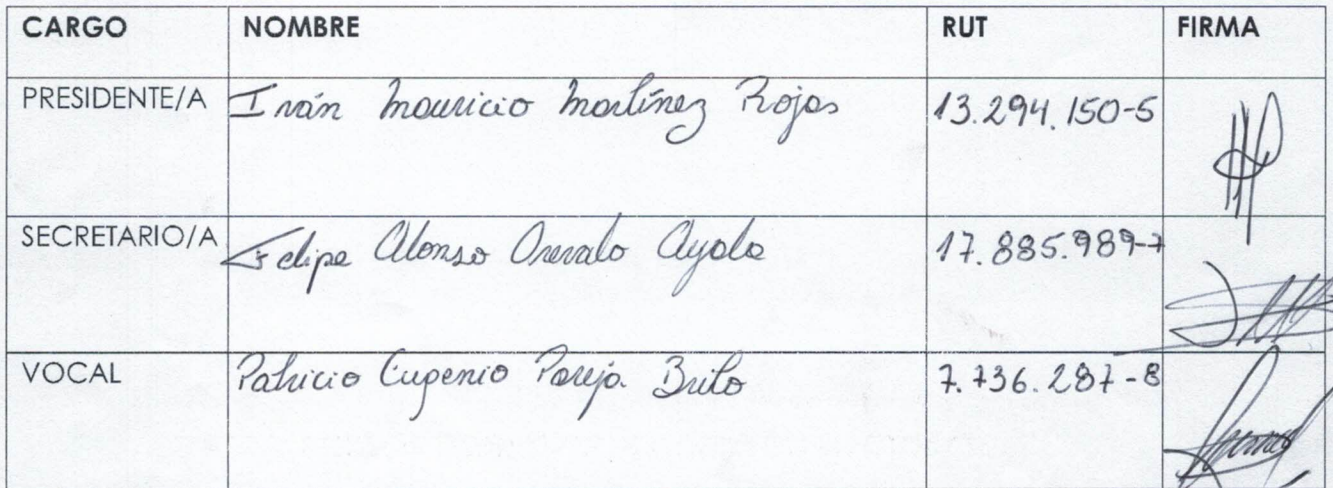 CARGO NOMBRE RUT FIRMA
PRESIDENTE/A Iván Mauricio Martínez Rojas 13.294.150-5
SECRETARIO/A Felipe Alonso Arevalo Ayala 17.885.989-7
VOCAL Patricio Eugenio Pareja Brito 7.736.287-8